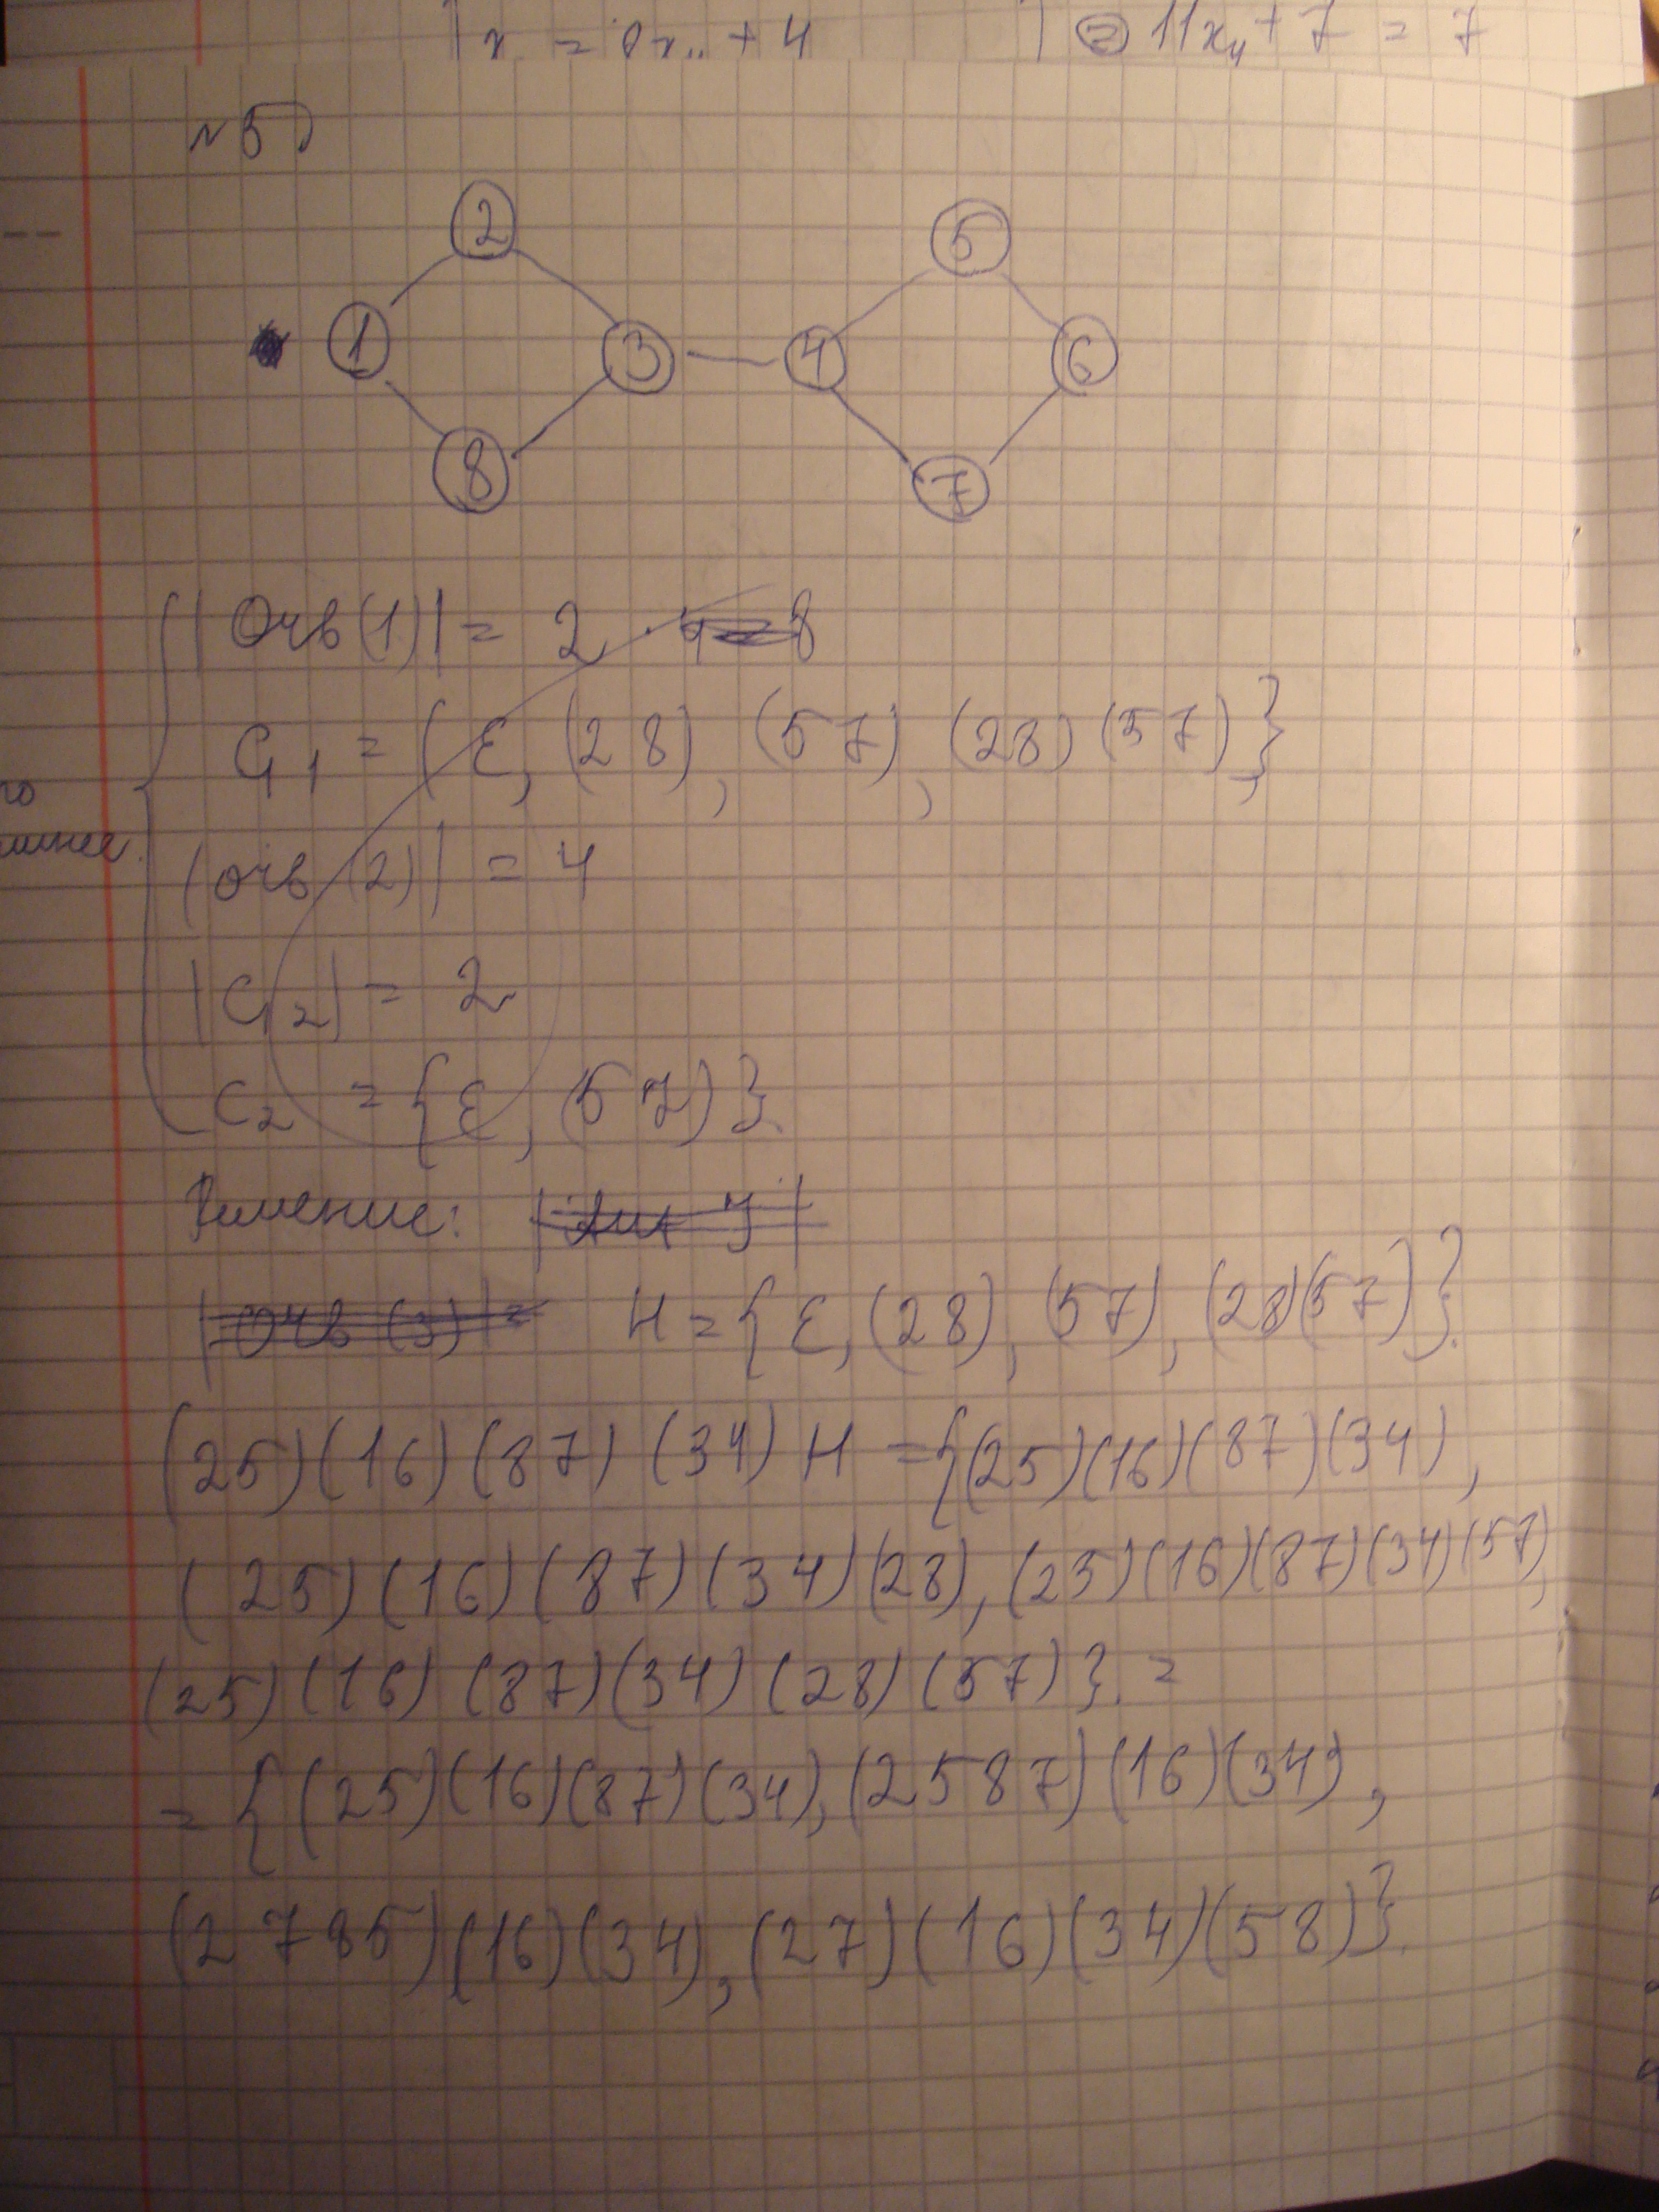 = 11x₄ + 7 = 7
№5)
2 5
1 3 4 6
8 7
|Orb(1)| = 2
G₁ = {ε, (28), (57), (28)(57)}
|Orb(2)| = 4
|G₂| = 2
G₂ = {ε, (57)}.
Решение:
|Orb(3)|= H = {ε, (28), (57), (28)(57)}.
(25)(16)(87)(34)H = {(25)(16)(87)(34),
(25)(16)(87)(34)(28), (25)(16)(87)(34)(57),
(25)(16)(87)(34)(28)(57)}. =
= {(25)(16)(87)(34), (2587)(16)(34),
(2785)(16)(34), (27)(16)(34)(58)}.